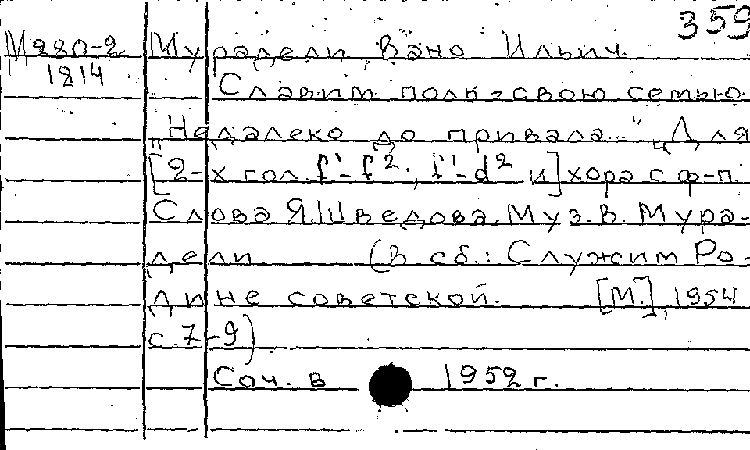 359
М220-2 Мурадели Вано Ильич.
1214 Славим полк-свою семью.
„Недалеко до привала..." Для
[2-х гол. f¹-f²; f¹-d² и] хора с ф-п.
Слова Я.Шведова. Муз. В. Мура-
дели. (В сб.: Служим Ро-
дине советской. [М.], 1954
с. 7-9)
Соч. в 1952 г.